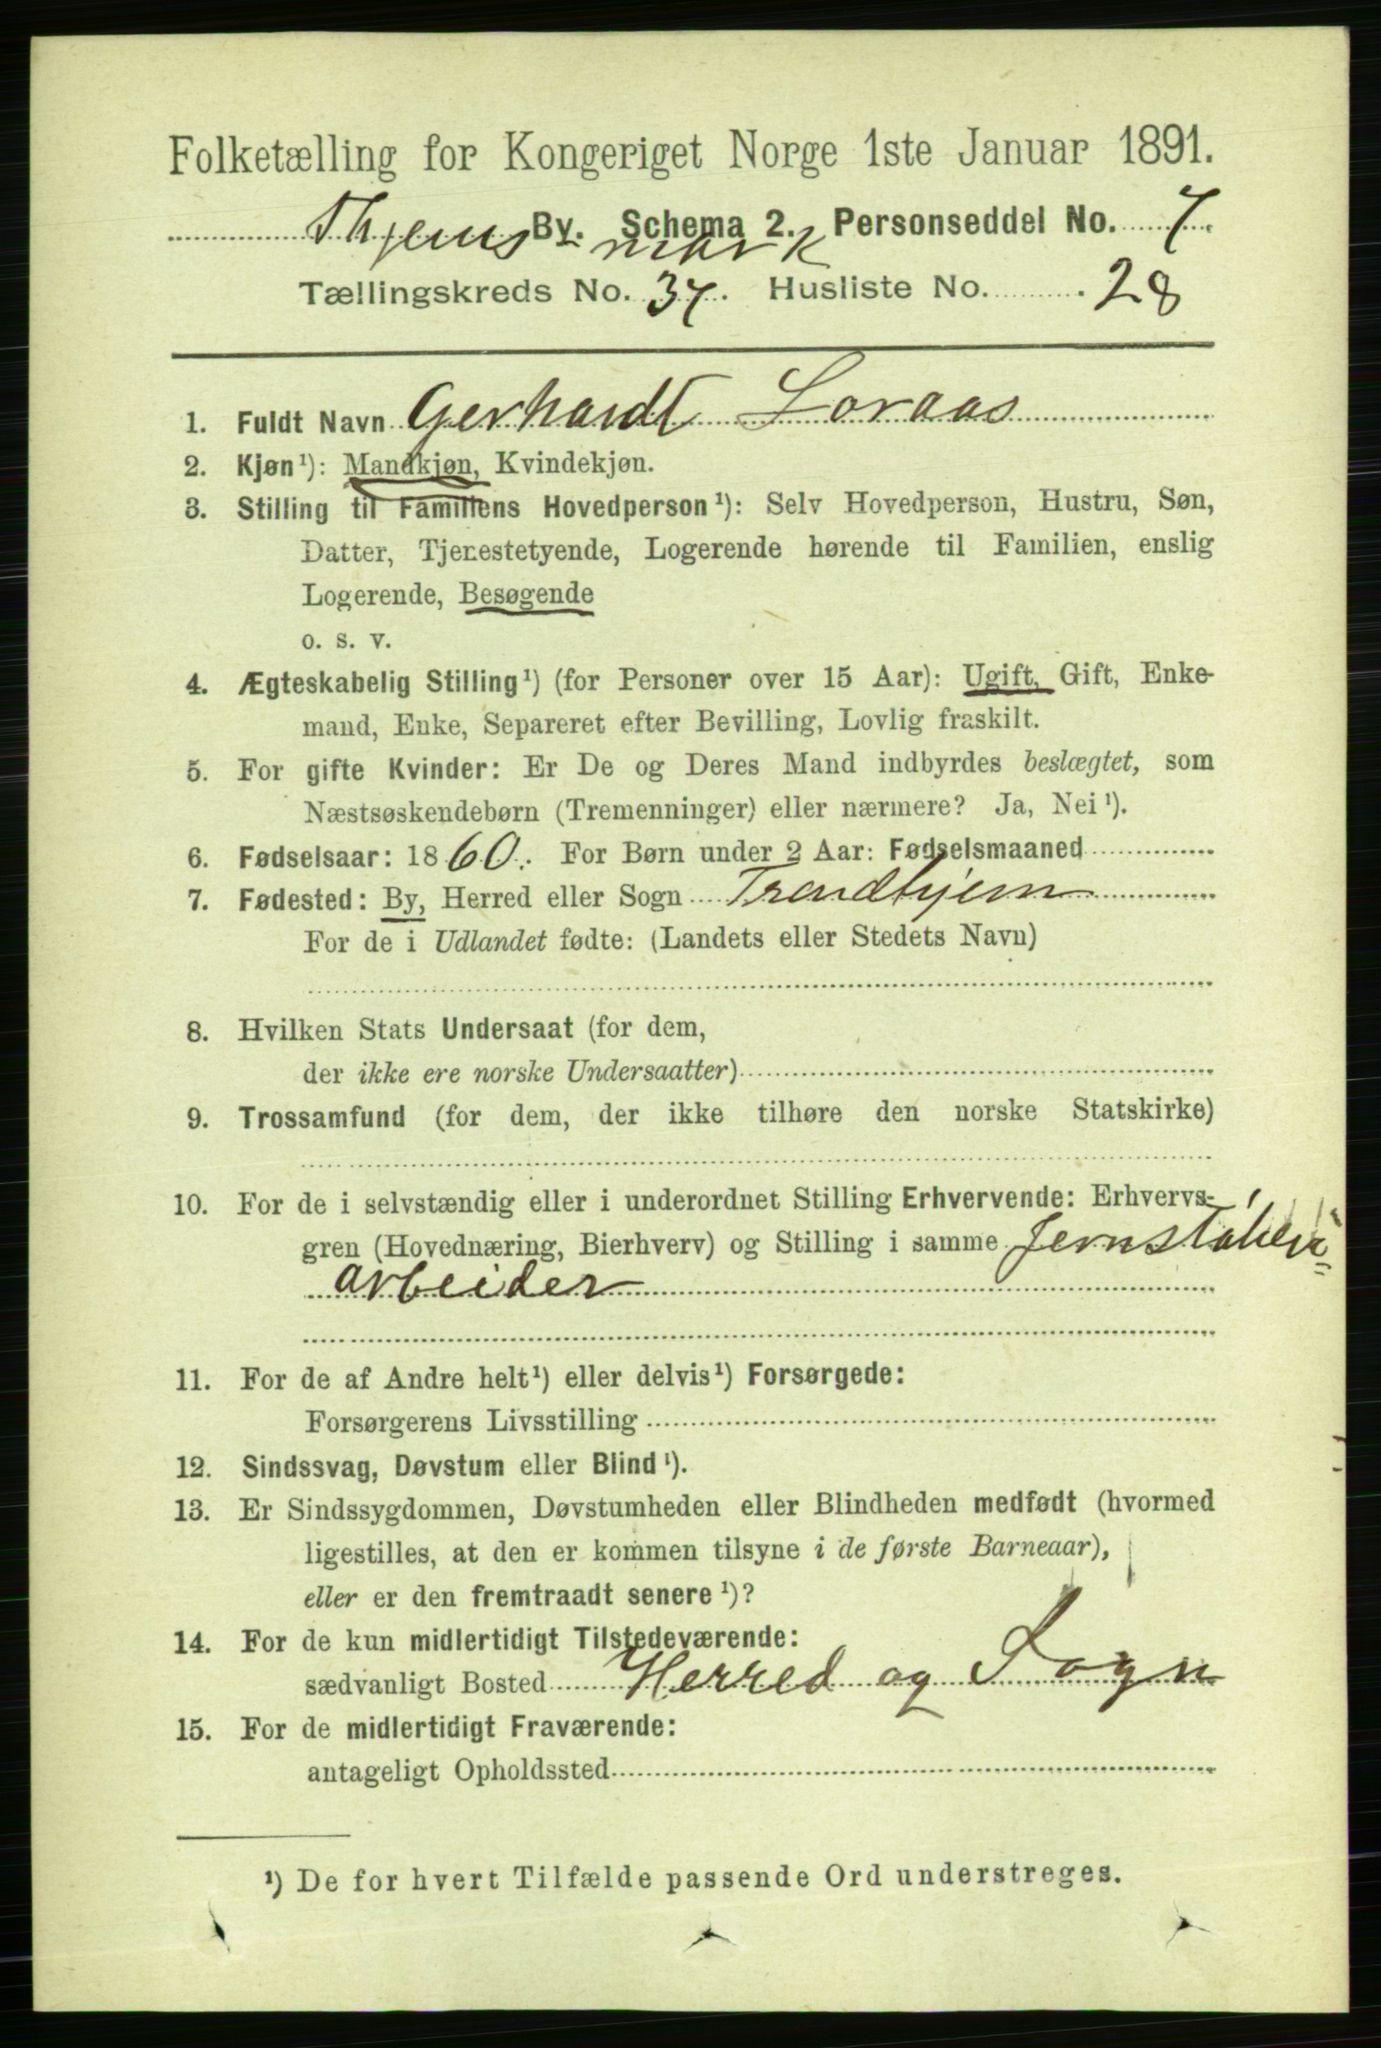 Folketælling for Kongeriget Norge 1ste Januar 1891.
By. Schema 2. Personseddel No. 7.
mark
Tællingskreds No. 37. Husliste No. 28
1. Fuldt Navn Gerhardt Loraas
2. Kjøn¹): Mandkjøn, Kvindekjøn.
3. Stilling til Familiens Hovedperson¹): Selv Hovedperson, Hustru, Søn,
Datter, Tjenestetyende, Logerende hørende til Familien, enslig
Logerende, Besøgende
o. s. v.
4. Ægteskabelig Stilling¹) (for Personer over 15 Aar): Ugift, Gift, Enke-
mand, Enke, Separeret efter Bevilling, Lovlig fraskilt.
5. For gifte Kvinder: Er De og Deres Mand indbyrdes beslægtet, som
Næstsøskendebørn (Tremenninger) eller nærmere? Ja, Nei¹).
6. Fødselsaar: 1860. For Børn under 2 Aar: Fødselsmaaned
7. Fødested: By, Herred eller Sogn Trondhjem
For de i Udlandet fødte: (Landets eller Stedets Navn)
8. Hvilken Stats Undersaat (for dem,
der ikke ere norske Undersaatter)
9. Trossamfund (for dem, der ikke tilhøre den norske Statskirke)
10. For de i selvstændig eller i underordnet Stilling Erhvervende: Erhvervs-
gren (Hovednæring, Bierhverv) og Stilling i samme Jernstøberi
arbeider
11. For de af Andre helt¹) eller delvis¹) Forsørgede:
Forsørgerens Livsstilling
12. Sindssvag, Døvstum eller Blind¹).
13. Er Sindssygdommen, Døvstumheden eller Blindheden medfødt (hvormed
ligestilles, at den er kommen tilsyne i de første Barneaar),
eller er den fremtraadt senere¹)?
14. For de kun midlertidigt Tilstedeværende:
sædvanligt Bosted Herred og Sogn
15. For de midlertidigt Fraværende:
antageligt Opholdssted
¹) De for hvert Tilfælde passende Ord understreges.